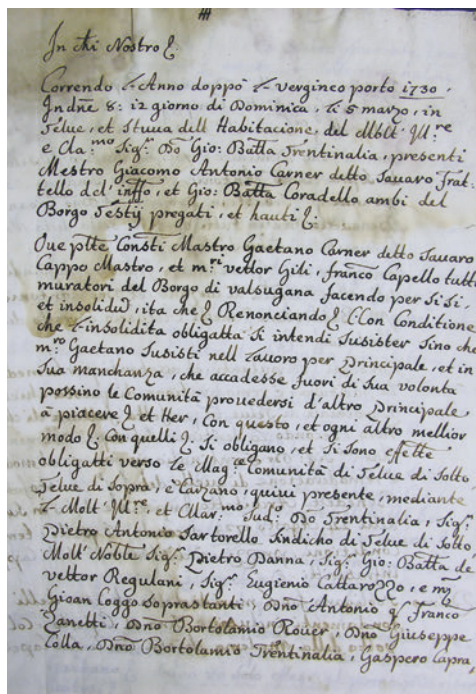 In Chi Nostro &.
Correndo l'Anno doppo l. vergineo porto 1730.
Indne 8: il giorno di Dominica, li 5 marzo, in
Telue, et Stuua dell Habitacione, del Mblt. Ill.re
e Cla.mo Sig.r Do Gio: Batta Trentinalia, presenti
Mestro Giacomo Antonio Carner detto Sauaro Frat-
tello del' inffo, et Gio: Batta Coradello ambi del
Borgo Testij pregati, et hauti &.
Oue ptte Consti Mastro Gaetano Carner detto Sauaro
Cappo Mastro, et m.ri vettor Gili, franco Capello tutti
muratori del Borgo di valsugana facendo per Si Si
et insolidu, ita che & Renonciando & Con Conditione
che l'insolidita obligatta Si intendi Susister Sino che
m.ro Gaetano Susisti nell Lauoro per Principale, et in
Sua manchanza, che accadesse fuori di Sua volontà
possino le Comunità prouedersi d'altro Principale
à piacere & et Her, Con questo, et ogni altro mellior
modo &. Con quelli &. Si obligano, et Si Sono effette
obligatti verso le Mag.ce Comunità di Telue di Sotto
Telue di Sopra, e Carzano, quiui presente, mediante
l. Molt. Ill.re, et Clar.mo Sud.o Do Trentinalia, Sig.r
Pietro Antonio Sartorello Sindicho di Telue di Sotto
Molt' Noble Sig.r Pietro Danna, Sig.r Gio: Batta de
vettor Regulani, Sig.r Eugenio Cattarozzo, e m.
Gioan Coggo Soprastanti, Dno Antonio q. Franco
Zanetti, Dno Bortolamio Rouer, Dno Giuseppe
Colla, Dno Bortolamio Trentinalia, Gaspero Capra,